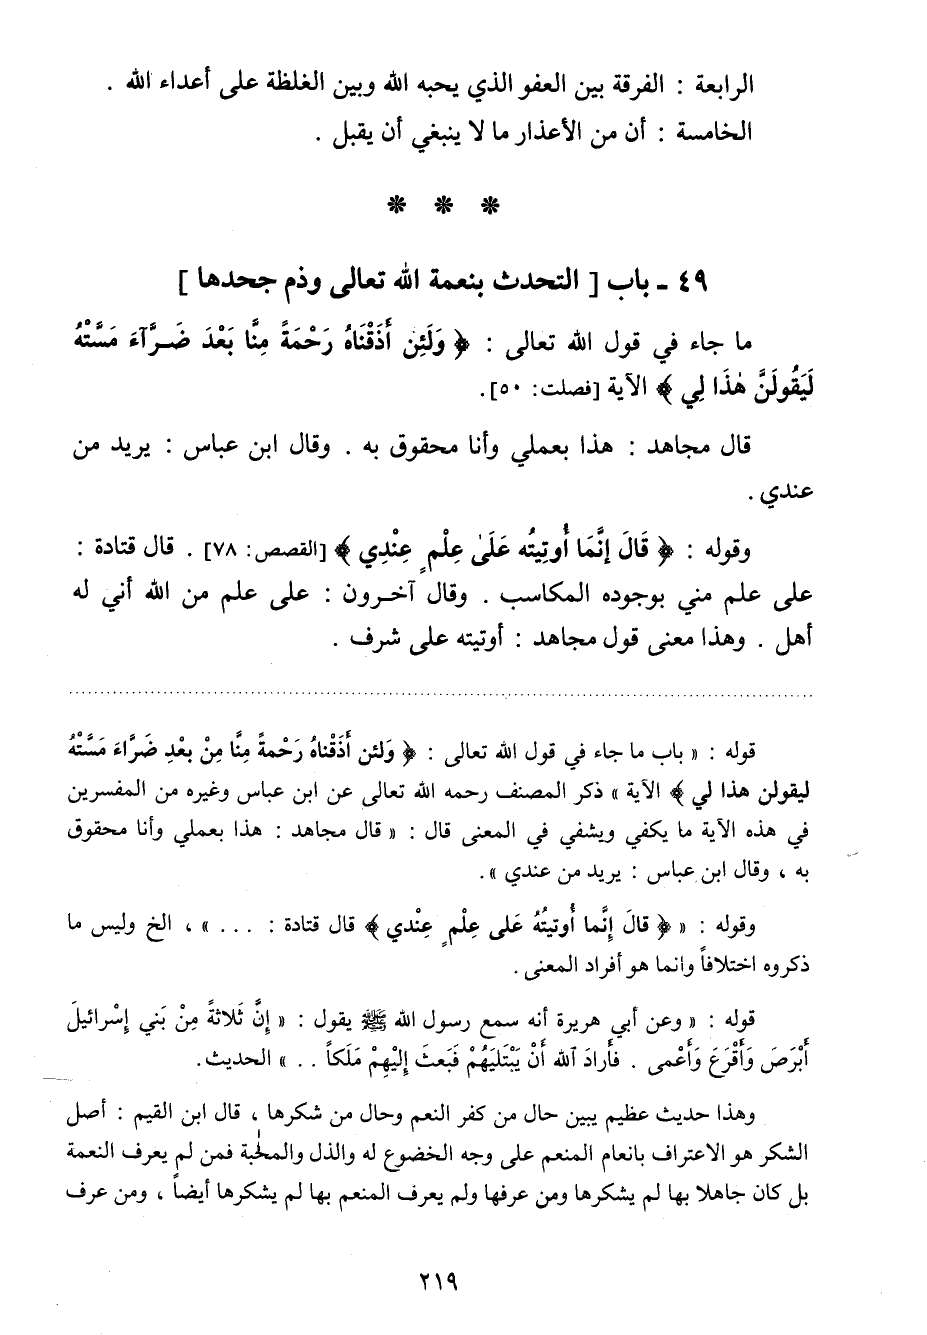 الرابعة : الفرقة بين العفو الذي يحبه الله وبين الغلظة على أعداء الله .
الخامسة : أن من الأعذار ما لا ينبغي أن يقبل .
* * *
٤٩ - باب [ التحدث بنعمة الله تعالى وذم جحدها ]
ما جاء في قول الله تعالى : ﴿ وَلَئِن أَذَقْنَاهُ رَحْمَةً مِنَّا بَعْدَ ضَرَّآءَ مَسَّتْهُ
لَيَقُولَنَّ هٰذَا لِي ﴾ الآية [فصلت: ٥٠].
قال مجاهد : هذا بعملي وأنا محقوق به . وقال ابن عباس : يريد من
عندي .
وقوله : ﴿ قَالَ إنَّمَا أُوتِيتُه عَلَىٰ عِلْمٍ عِنْدِي ﴾ [القصص: ٧٨] . قال قتادة :
على علم مني بوجوده المكاسب . وقال آخرون : على علم من الله أني له
أهل . وهذا معنى قول مجاهد : أوتيته على شرف .
قوله : « باب ما جاء في قول الله تعالى : ﴿ وَلئن أَذَقْناهُ رَحْمةً مِنَّا مِنْ بعْدِ ضَرَّاءَ مَسَّتْهُ
ليقولن هذا لي ﴾ الآية » ذكر المصنف رحمه الله تعالى عن ابن عباس وغيره من المفسرين
في هذه الآية ما يكفي ويشفي في المعنى قال : « قال مجاهد : هذا بعملي وأنا محقوق
به ، وقال ابن عباس : يريد من عندي » .
وقوله : « ﴿ قالَ إنَّما أُوتيتُهُ عَلى عِلْمٍ عِنْدي ﴾ قال قتادة : ... » ، الخ وليس ما
ذكروه اختلافاً وانما هو أفراد المعنى .
قوله : « وعن أبي هريرة أنه سمع رسول الله ﷺ يقول : « إنَّ ثَلاثةً مِنْ بَني إسْرائيلَ
أَبْرَصَ وَأَقْرَعَ وَأَعْمى . فأَرادَ الله أنْ يَبْتَليَهُمْ فَبَعثَ إليْهِمْ مَلَكاً .. » الحديث .
وهذا حديث عظيم يبين حال من كفر النعم وحال من شكرها ، قال ابن القيم : أصل
الشكر هو الاعتراف بانعام المنعم على وجه الخضوع له والذل والمحبة فمن لم يعرف النعمة
بل كان جاهلا بها لم يشكرها ومن عرفها ولم يعرف المنعم بها لم يشكرها أيضاً ، ومن عرف
٢١٩